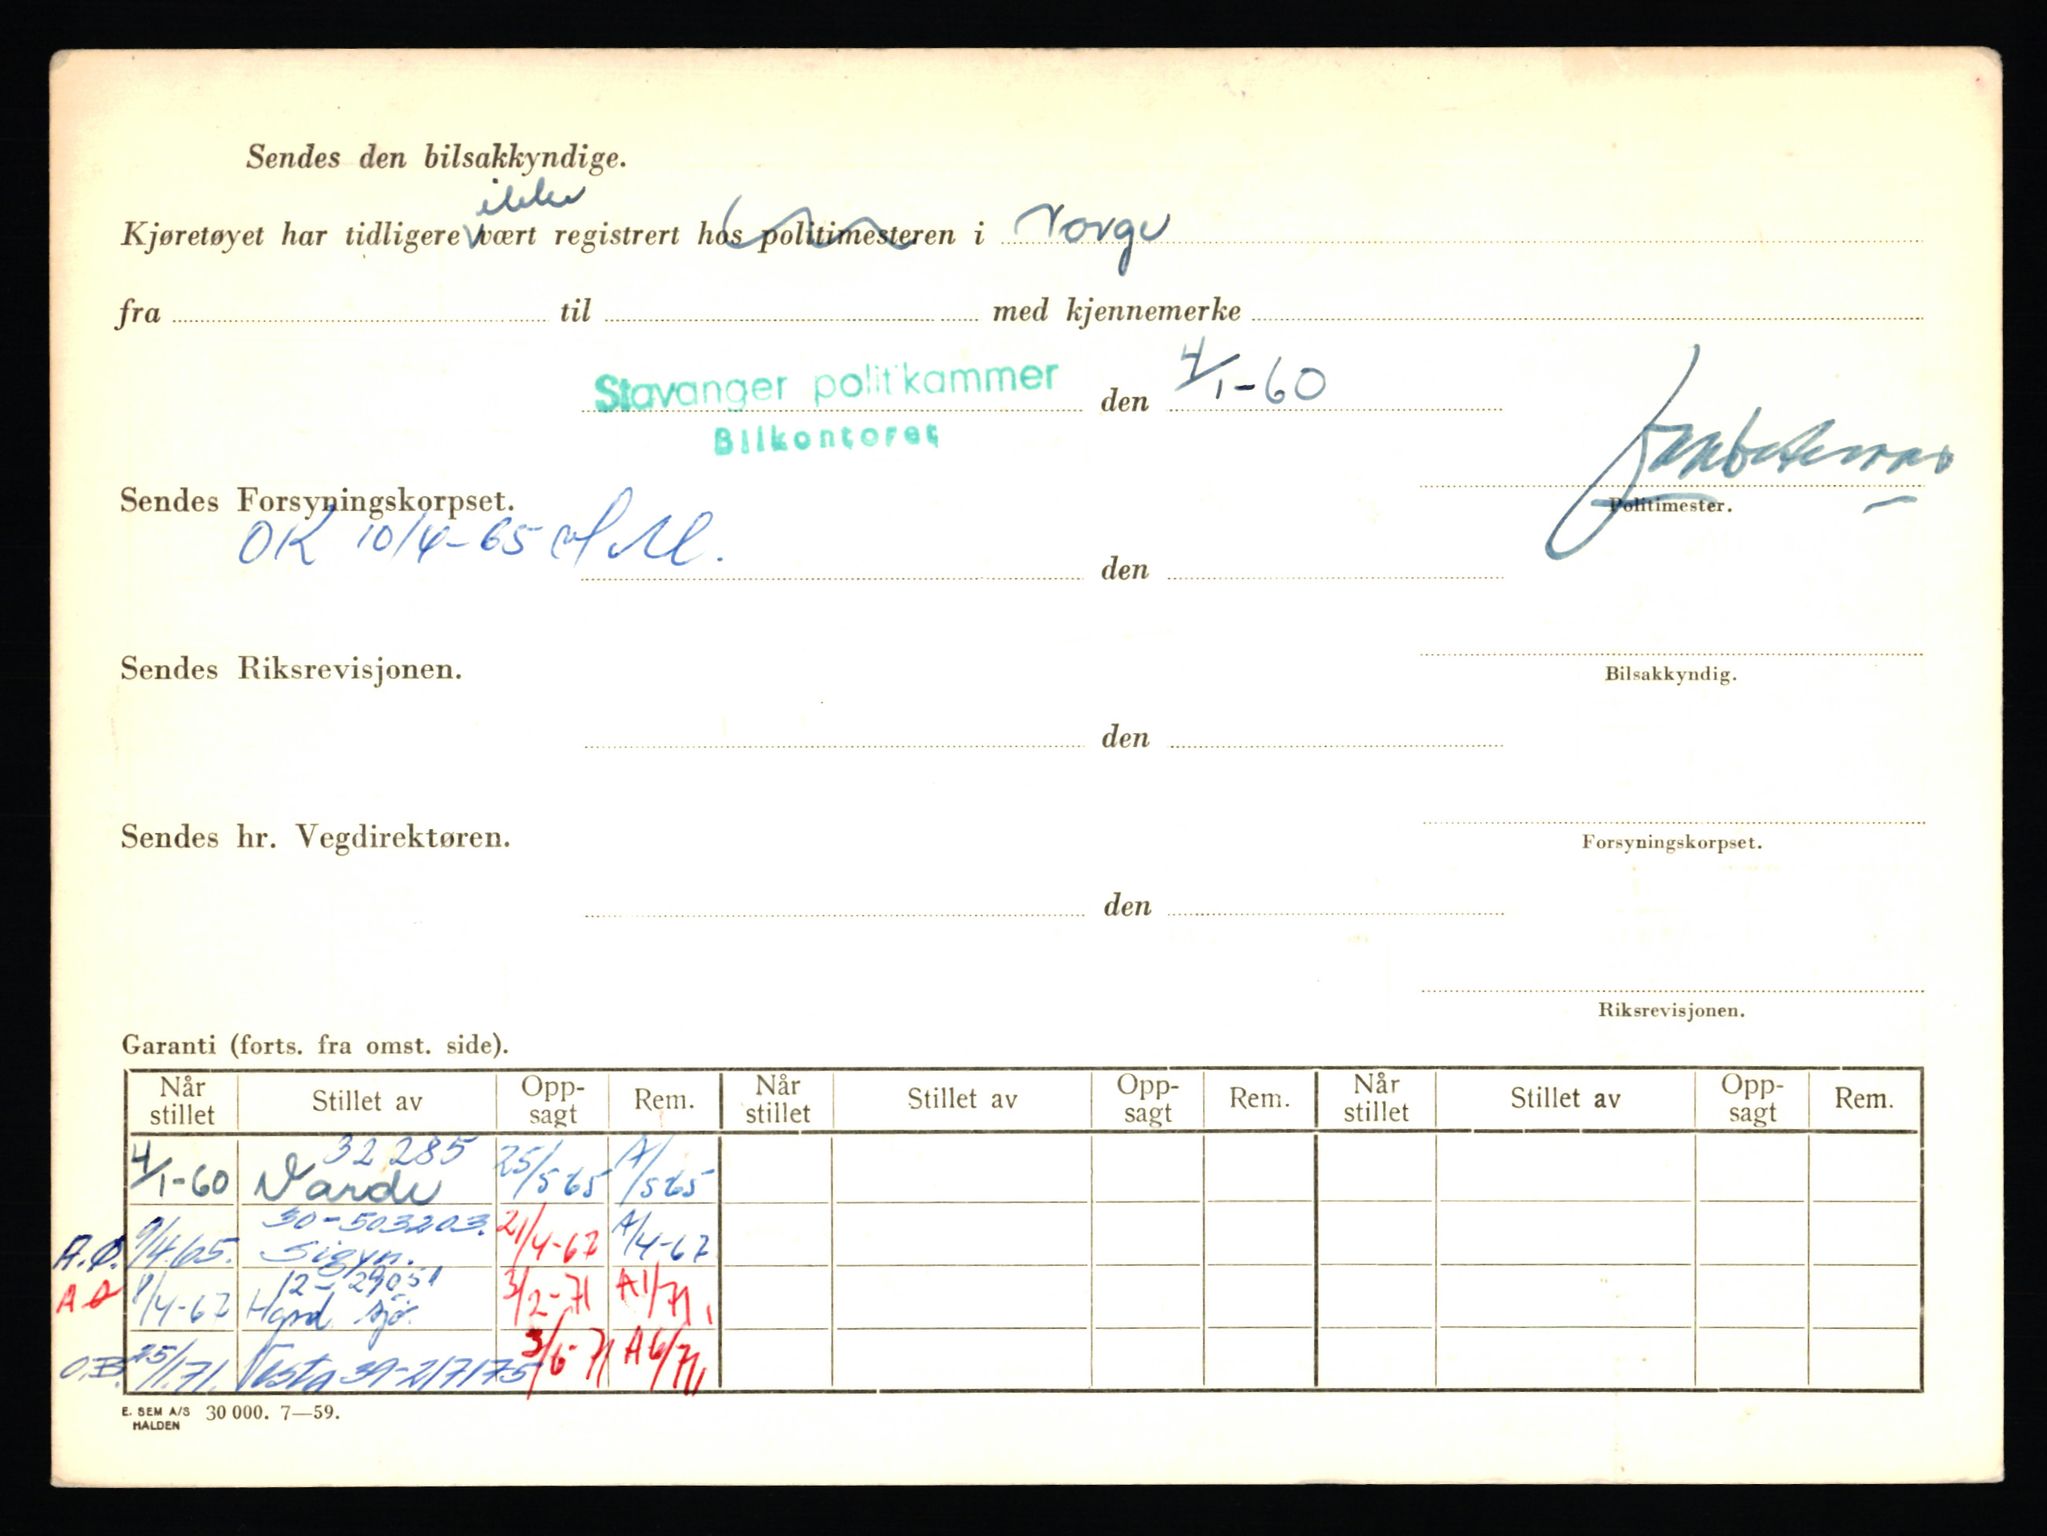 Sendes den bilsakkyndige.
ikke
Kjøretøyet har tidligere vært registrert hos politimesteren i Norge
fra til med kjennemerke
Stavanger politikammer den 4/1-60
Bilkontoret
Sendes Forsyningskorpset.
Politimester.
OK 10/4-65
den
Sendes Riksrevisjonen.
Bilsakkyndig.
den
Sendes hr. Vegdirektøren.
Forsyningskorpset.
den
Riksrevisjonen.
Garanti (forts. fra omst. side).
Når stillet Stillet av Opp-sagt Rem. Når stillet Stillet av Opp-sagt Rem. Når stillet Stillet av Opp-sagt Rem.
32285
4/1-60 Varde 25/5 65 A/5 65
30-503203.
A.Ø. 9/4/65. Sigyn. 21/4-67 A/4-67
12-29051
/4-67 3/2-71 A1/71
O.B. 25/1.71. Vesta 39-217175 3/6-71 A6/71
E. SEM A/S HALDEN 30 000. 7—59.